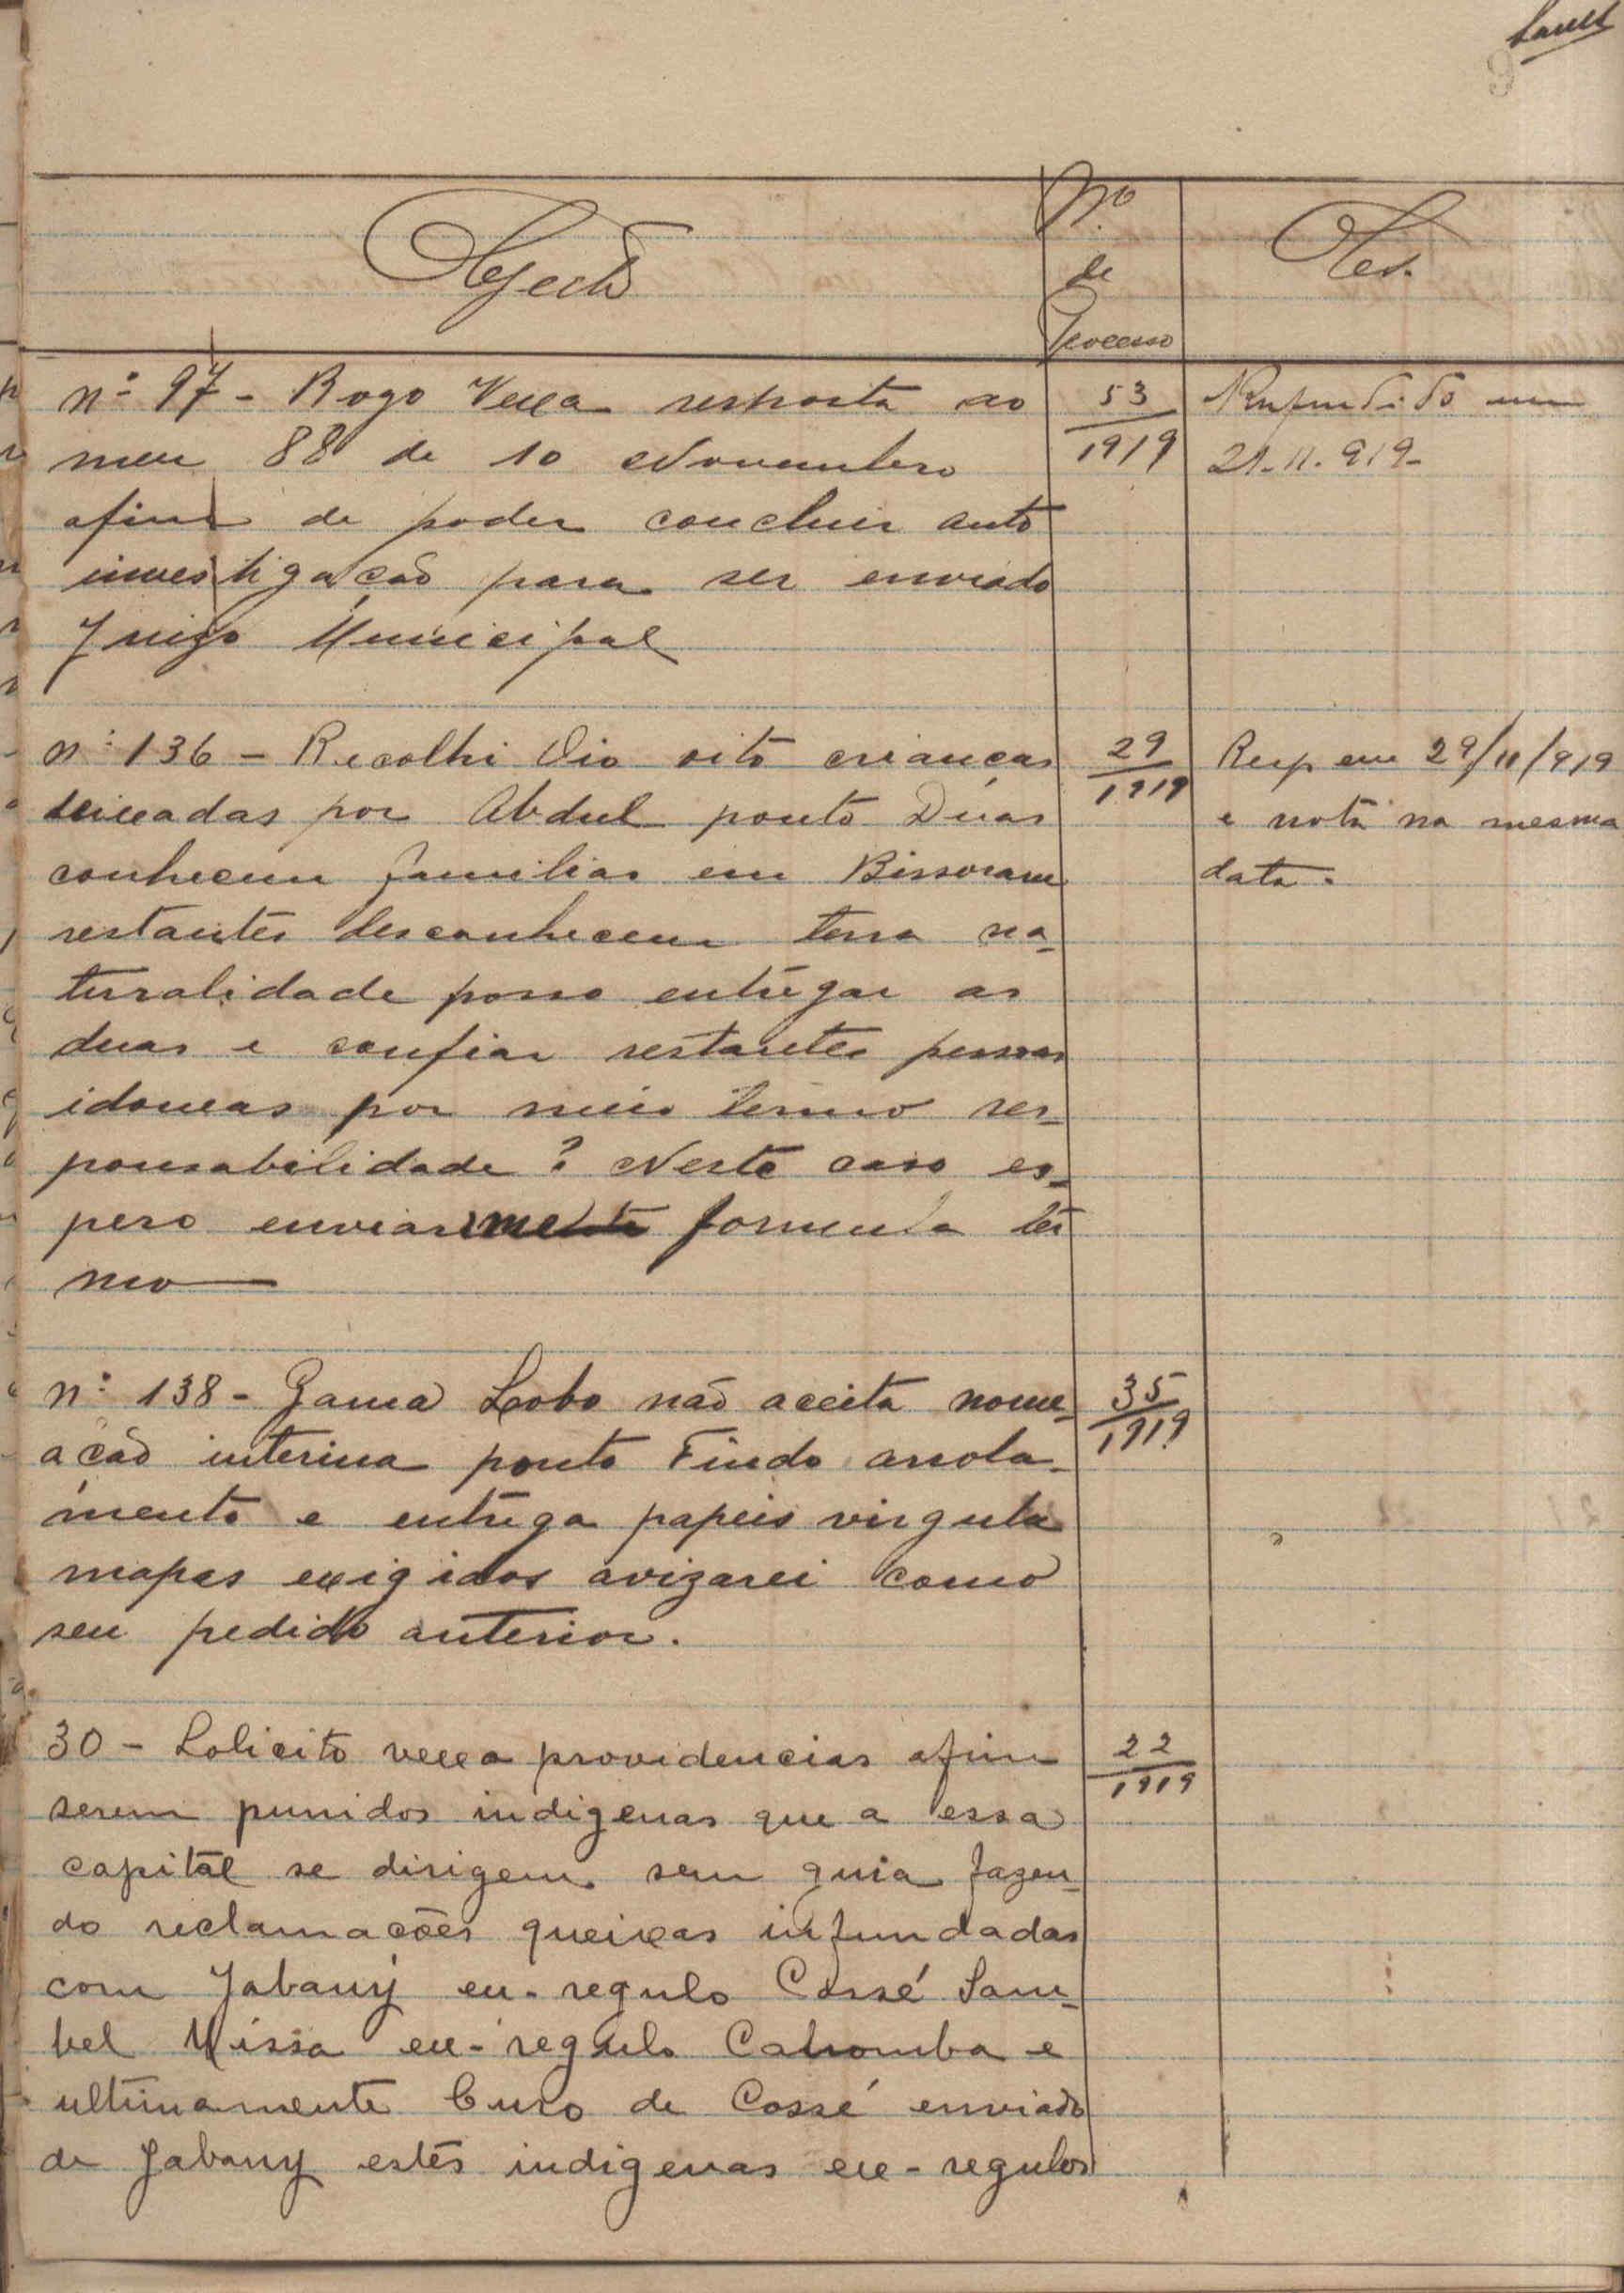 Objecto
Nº
de
Processo
Obs.
nº 97 - Rogo Vexa resposta ao
meu 88 de 10 Novembro
afim de poder concluir auto
investigação para ser enviado
Juizo Municipal
53
1919
Respondido em
21-11-919-
nº 136 - Recolhi Oio oito crianças
deixadas por Abdul ponto Duas
conhecem familias em Bissoram
restantes desconhecem terra na-
turalidade posso entregar as
duas e confiar restantes pessoas
idoneas por meio termo res-
ponsabilidade? Neste caso es-
pero enviar-me formula ter
mo
29
1919
Resp em 29/11/919
e nota na mesma
data.
nº 138 - Gama Lobo não aceita nome-
ação interina ponto Findo arrola-
mento e entrega papeis virgula
mapas exigidos avizarei como
seu pedido anterior.
35
1919
30 - Solicito vexa providencias afim
serem punidos indigenas que a essa
capital se dirigem sem guia fazen-
do reclamações queixas infundadas
com Jabany ex-regulo Cossé Sam-
bel Nissa ex-regulo Cahomba e
ultimamente Curo de Cossé enviado
de Jabany estes indigenas ex-regulos
22
1919